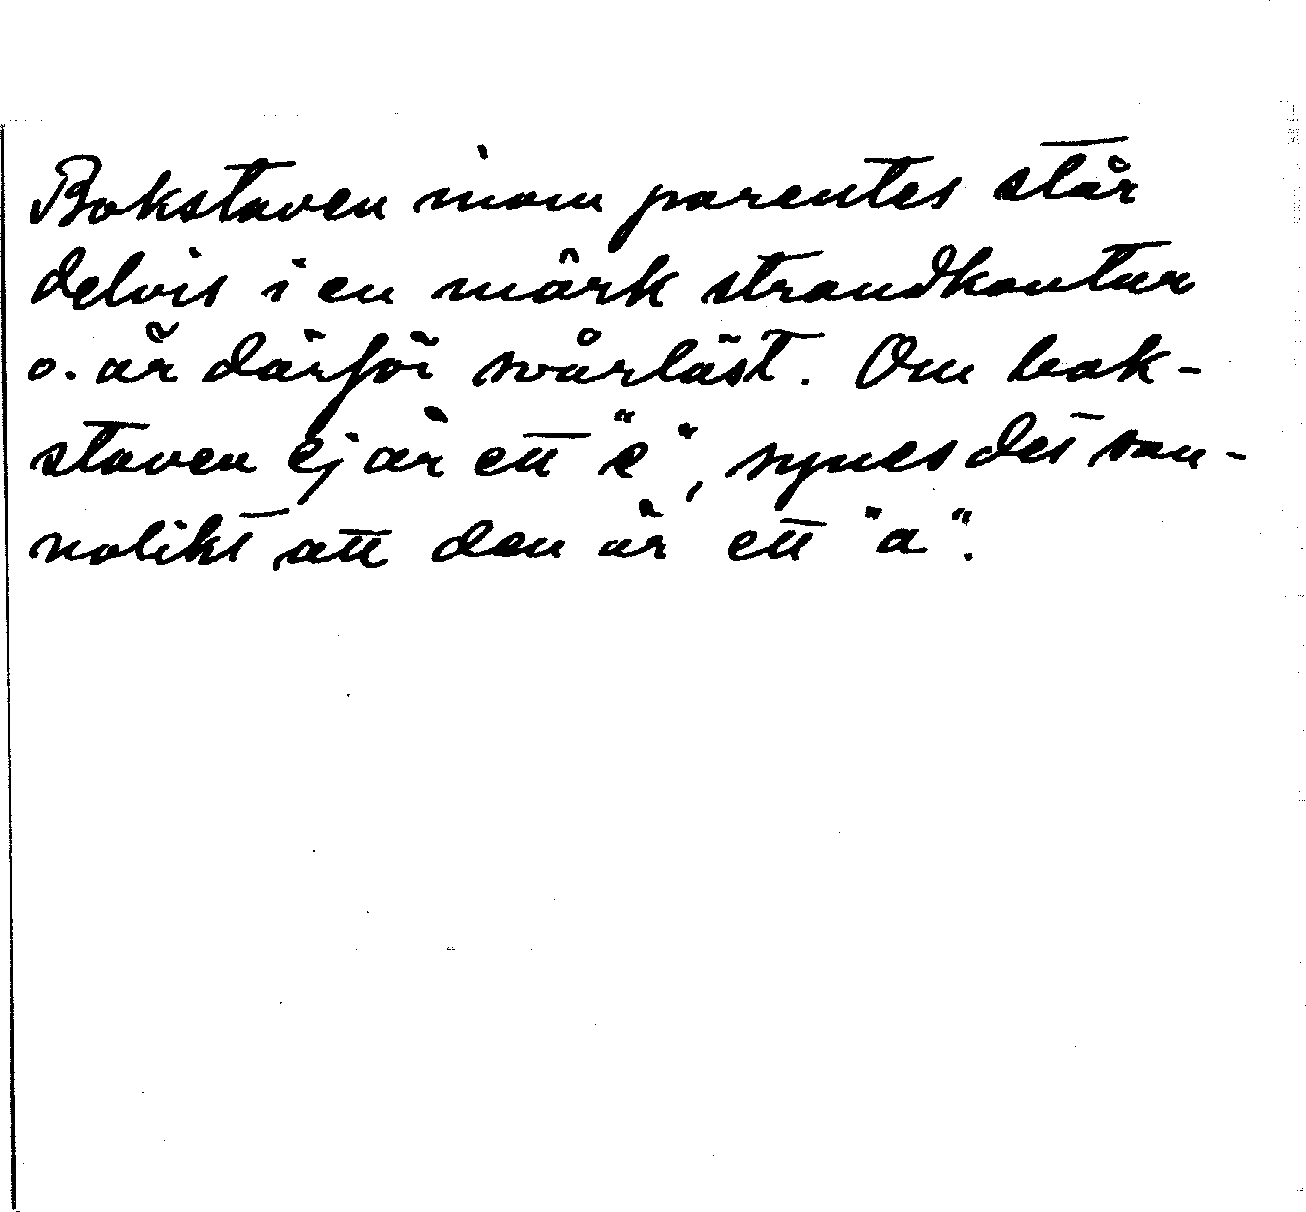 Bokstaven inom parentes står
delvis i en mörk strandkontur
o. är därför svårläst. Om bok-
staven ej är ett "e", synes det san-
nolikt att den är ett "a".